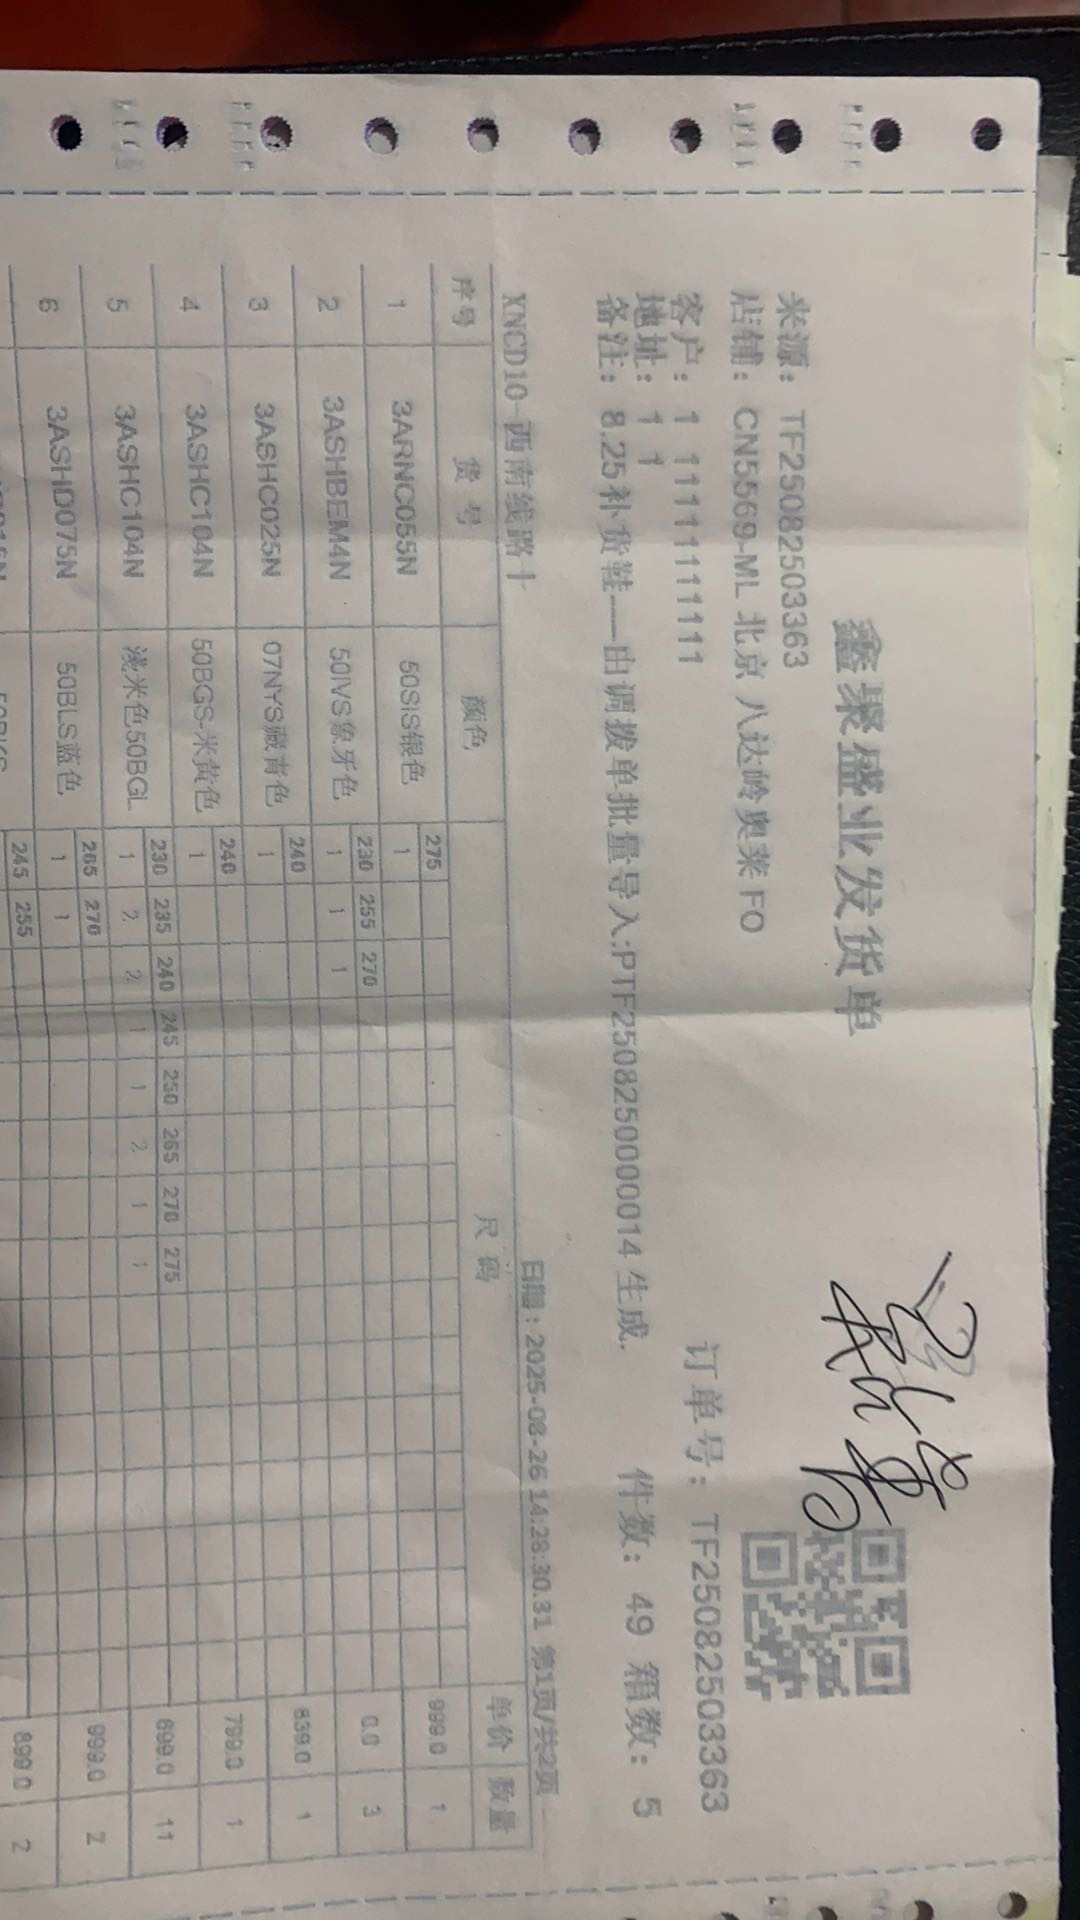 鑫聚盛业发货单
来源: TF25082503363
店铺: CN5569-ML 北京 八达岭奥莱 FO
订单号: TF25082503363
客户: 1 11111111111
地址: 1 1
件数: 49 箱数: 5
备注: 8.25补货鞋---由调拨单批量导入:PTF250825000014 生成.
XNCD10-西南线路十
日期: 2025-08-26 14:28:30.31 第1页/共2页
序号 货号 颜色 尺码 单价 数量
275
1 3ARNC055N 50SIS银色 1 999.0 1
230 255 270
2 3ASHBEM4N 50IVS象牙色 1 1 1 0.0 3
240
3 3ASHC025N 07NYS藏青色 1 839.0 1
240
4 3ASHC104N 50BGS-米黄色 1 799.0 1
230 235 240 245 250 265 270 275
5 3ASHC104N 浅米色50BGL 1 2 2 1 1 2 1 1 699.0 11
265 270
6 3ASHD075N 50BLS蓝色 1 1 999.0 2
245 255
899.0 2